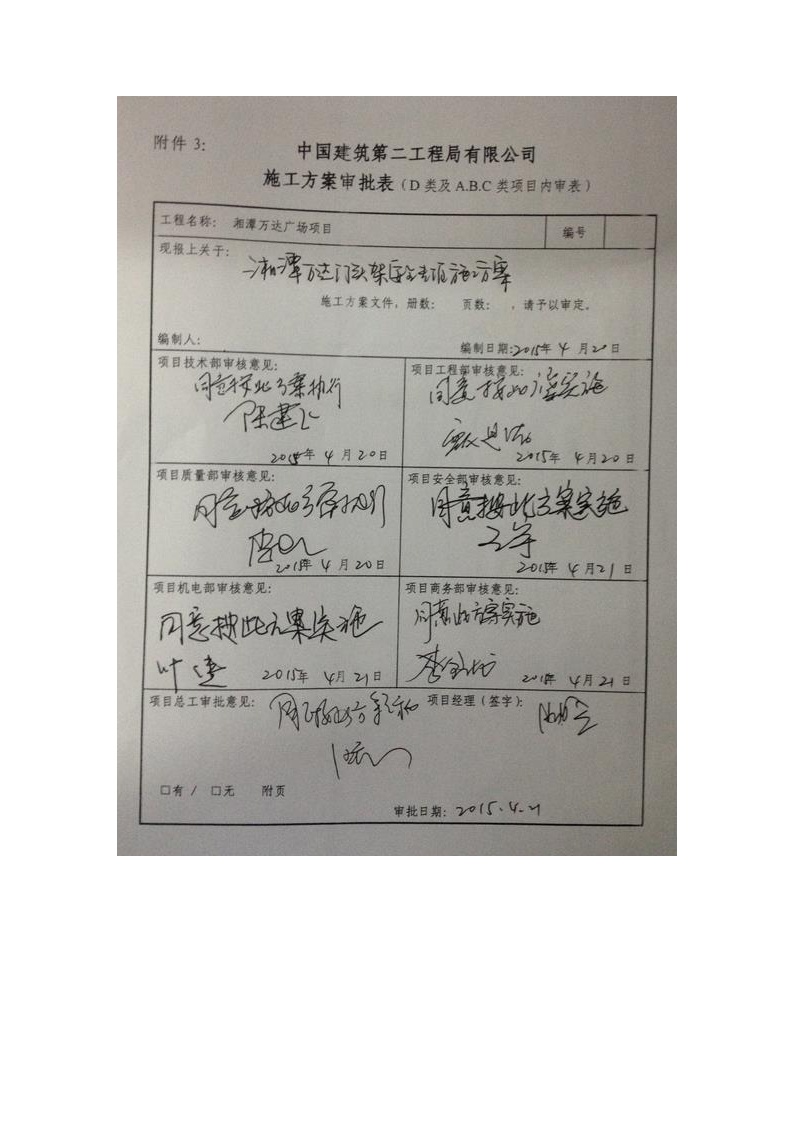 附件 3:
中国建筑第二工程局有限公司
施工方案审批表（D 类及 A.B.C 类项目内审表）
工程名称： 湘潭万达广场项目 编号
现报上关于：
湘潭万达门头架安全专项施工方案
施工方案文件，册数： 页数： ，请予以审定。
编制人：
编制日期:2015年 4 月 20 日
项目技术部审核意见:
同意按此方案执行
2015年 4 月 20 日
项目工程部审核意见:
同意按此方案实施
2015年 4 月 20 日
项目质量部审核意见:
同意按此方案执行
2015年 4 月 20 日
项目安全部审核意见:
同意按此方案实施
2015年 4 月 21 日
项目机电部审核意见:
同意按此方案实施
2015年 4 月 21 日
项目商务部审核意见:
同意此方案实施
2015年 4 月 21 日
项目总工审批意见:
项目经理（签字）:
□有 / □无 附页
审批日期: 2015.4.21